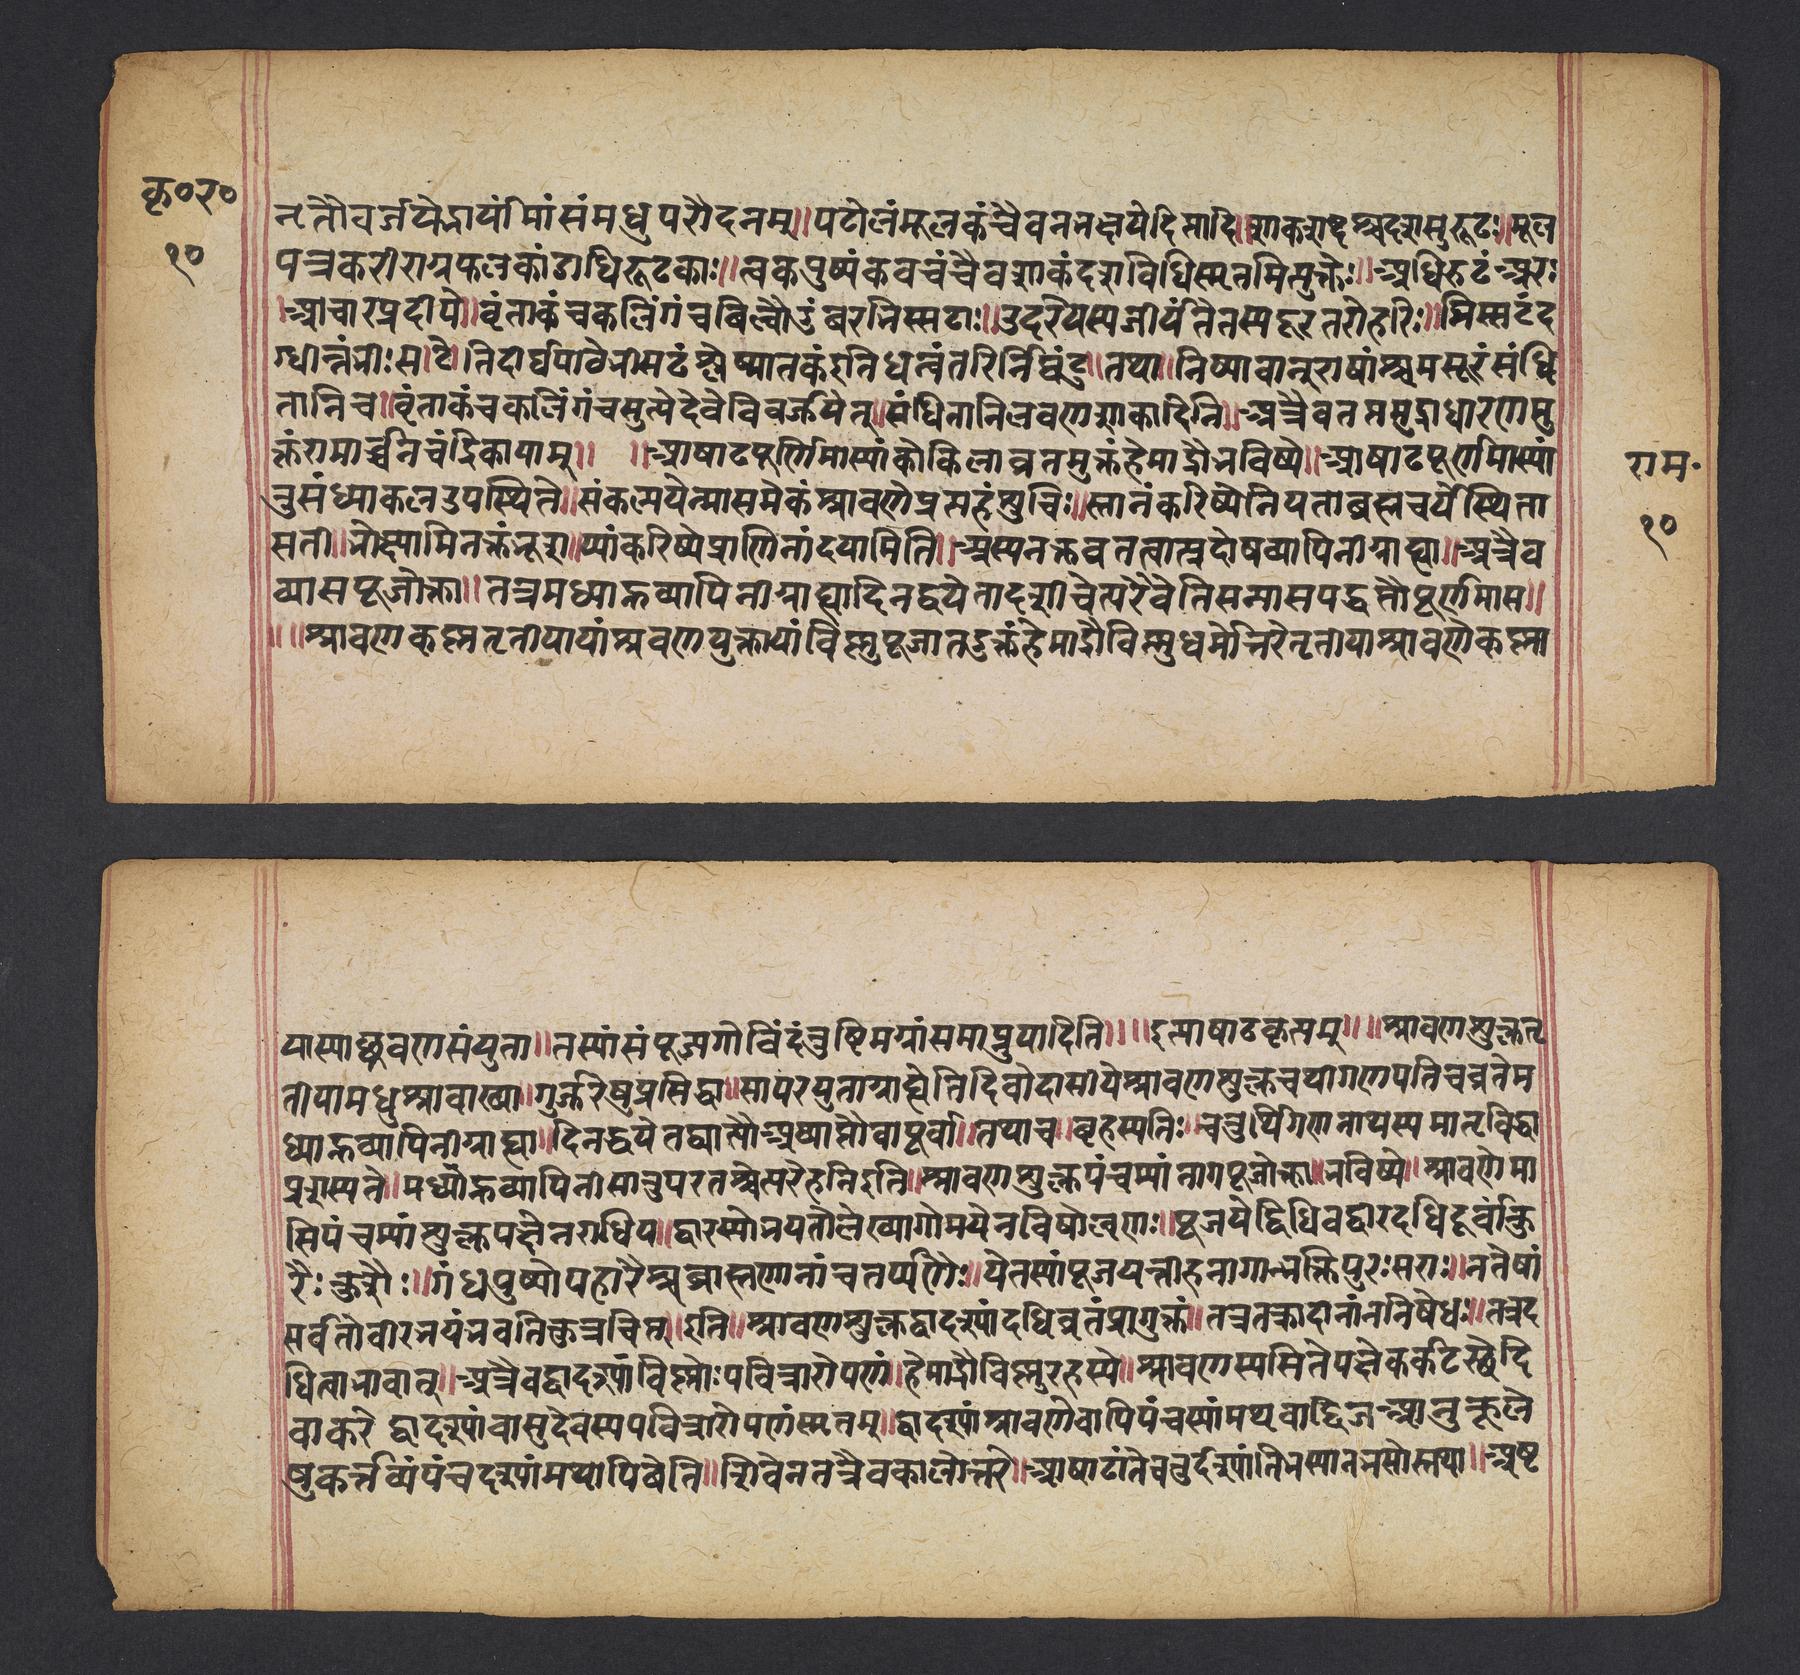 कृ०र०
१०
नृतौवर्जयेद्भार्यांमांसंमधुपरौदनम्॥पटोलंमूलकंचैवनभक्षयेदित्यादि॥शाकशब्दश्चदशसुरूढः॥मूल
पत्रकरीराग्रफलकांडाधिरूढकाः॥त्वकपुष्पंकवचंचैवशाकंदशविधिस्मृतमित्युक्तेः॥अधिरूढंअंकुरः
॥आचारप्रदीपे॥वृंताकंचकलिंगंचबिल्वौडुंबरभिस्सटाः॥उदरेयस्यजीर्यंतेतस्यदूरतरोहरिः॥भिस्सटंद
ग्धान्नंभीःसटेतिदीर्घपाठेभीसटंश्लेष्मातकंइतिधन्वंतरिनिघंटु॥तथा॥निष्पावान्राषांश्चमसूरंसंधि
तानिच॥वृंताकंचकलिंगंचसुप्तेदेवेविवर्ज्जयेत्॥संधितानिलवणशाकादिनि॥अत्रैवतप्तमुद्राधारणमु
क्तंरामार्च्चनचंद्रिकायाम्॥ ॥आषाढपूर्णिमास्यांकोकिलाव्रतमुक्तंहेमाद्रौभविष्ये॥आषाढपूर्णमास्यां
तुसंध्याकलउपस्थिते॥संकल्पयेन्मासमेकंश्रावणेप्रत्महंशुचिः॥स्नानंकरिष्येनियताब्रह्मचर्येस्थिता
सती॥भोक्ष्यामिनक्तंभूशय्यांकरिष्येप्राणिनांदयामिति॥अस्यनक्तव्रतत्वात्प्रदोषव्यापिनीग्राह्या॥अत्रैव
व्यासपूजोक्ता॥तत्रमध्याह्नव्यापिनीग्राह्यादिनद्वयेतादृशीचेत्परैवेतिसन्यासपद्धतौपूर्णमास॥
॥॥श्रावणकृष्णतृतीयायांश्रवणयुक्तायांविष्णुपूजातदुक्तंहेमाद्रौविष्णुधर्मोत्तरेतृतीयाश्रावणेकृष्णा
राम॰
१०
यास्याच्छ्रवणसंयुता॥तस्यांसंपूज्यगोविंदंतुष्टिमग्र्यांसमाप्नुयादिति॥॥इत्याषाढकृत्यम्॥॥श्रावणशुक्लतृ
तीयामधुश्रावाख्या॥गुर्ज्जरेषुप्रसिद्धा॥सापरयुताग्राह्येतिदिवोदासीयेश्रावणशुक्लचर्थीगणेपतिचव्रतेम
ध्याह्नव्यापिनीग्राह्या॥दिनद्वयेतद्व्याप्तौअव्याप्तौवापूर्वा॥तथाच॥बृहस्पतिः॥चतुर्थिगणनाथस्यमातृविद्धा
प्रशस्यते॥मध्याह्नव्यापिनीसातुपरतश्चेत्परेहनिइति॥श्रावणशुक्लपंचम्यांनागपूजोक्ता॥भविष्ये॥श्रावणेमा
सिपंचम्यांशुक्लपक्षेनराधिप॥द्वारस्योभयतोलेख्यागोमयेनविषोल्बणाः॥पूजयेद्विधिवद्वारदधिदूर्वांकु
रैःकुशैः॥गंधपुष्पोपहारैश्चब्राह्मणानांचतर्पणैः॥येतस्यांपूजयन्तीहनागान्भक्तिपुरःसराः॥नतेषां
सर्वतोवीरभयंभवतिकुत्रचित्॥इति॥श्रावणशुक्लद्वादश्यांदधिव्रतंप्रागुक्तं॥तत्रतक्रादीनांननिषेधः॥तत्रद
धित्वाभावात्॥अत्रैवद्वादश्यांविष्णोःपवित्रारोपणं॥हेमाद्रौविष्णुरहस्ये॥श्रावणस्यसितेपक्षेकर्कटस्थेदि
वाकरे द्वादश्यांवासुदेवस्यपवित्रारोपणंस्मृतम्॥द्वादश्यांश्रावणेवापिपंचम्यांमथवाद्विजआनुकूले
षुकर्त्तव्यंपंचदश्यांमथापिवेति॥शिवेनतत्रैवकालोत्तरे॥आषाढांतेचतुर्दश्यांतिभस्यानभसोस्तथा॥अष्ट